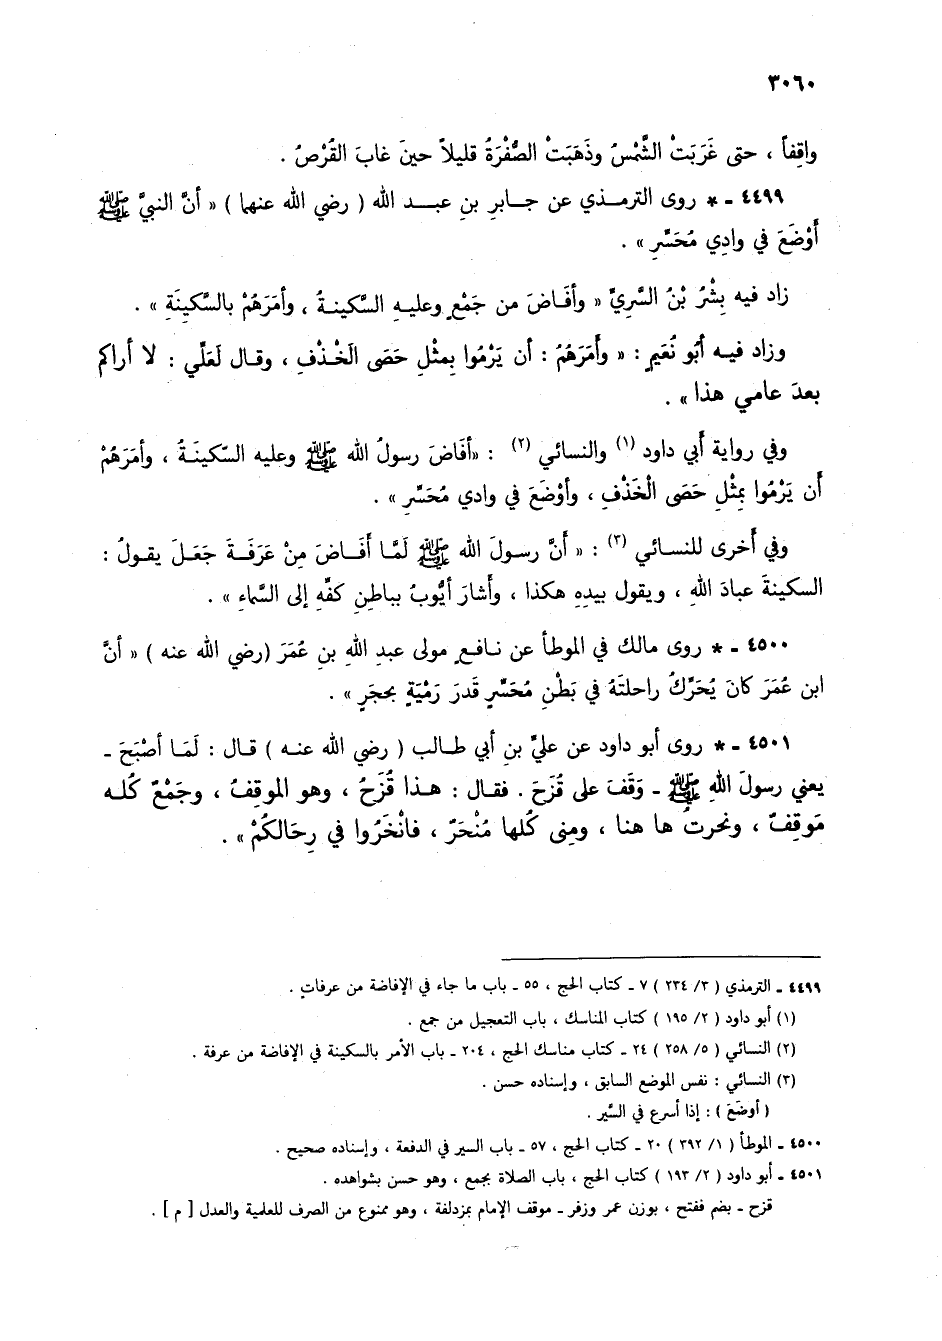 ٣٠٦٠
واقِفاً ، حتى غَرَبَتْ الشَّمْسُ وذَهَبَتْ الصُّفْرَةُ قليلاً حينَ غابَ القُرْصُ .
٤٤٩٩ - * روى الترمـذي عن جـابرِ بنِ عبـد الله ( رضي الله عنهما ) « أنَّ النبيَّ ﷺ
أَوْضَعَ في وادِي مُحَسِّرِ » .
زاد فيه بِشْرُ بْنُ السَّرِيِّ « وأفَـاضَ من جَمْعٍ وعليـهِ السَّكينـةُ ، وأمَرَهُمْ بالسَّكينَةِ » .
وزاد فيـه أبُو نُعَيمٍ : « وأَمَرَهُمُ : أن يَرْمُوا بِمثْلِ حَصَى الَخْـذْفِ ، وقـال لَعَلِّي : لا أراكم
بعدَ عامي هذا » .
وفي رواية أَبي داود (١) والنسائي (٢) : «أفَاضَ رسولُ الله ﷺ وعليه السّكينَـةُ ، وأمَرَهُمْ
أَن يَرْمُوا بِمْثلِ حَصَى الْخَذْفِ ، وأَوْضَعَ في وادي مُحَسِّرِ » .
وفي أَخرى للنسـائي (٣) : « أَنَّ رسـولَ الله ﷺ لَمَّا أَفَـاضَ مِنْ عَرَفَـةَ جَعَـلَ يقـولُ :
السكينةَ عبادَ اللهِ ، ويقول بيدِهِ هكذا ، وأَشارَ أيُّوبُ بباطنِ كفِّهِ إلى السَّماءِ » .
٤٥٠٠ - * روى مالك في الموطأ عن نـافـعٍ مولى عبدِ اللهِ بنِ عُمَرَ (رضي الله عنه ) « أنَّ
ابن عُمَرَ كانَ يُحَرِّكُ راحلتَهُ في بَطْنِ مُحَسِّرٍ قَدرَ رَمْيَةٍ بحجَرٍ » .
٤٥٠١ - * روى أبو داود عن عليِّ بنِ أبي طـالب ( رضي الله عنـه ) قـال : لَمَـا أصْبَحَ -
يعني رسولَ اللهِ ﷺ - وَقَفَ على قُزَحَ . فقـال : هـذا قُزَحُ ، وهو الموقِفُ ، وجَمْعٌ كُلـه
مَوقِفٌ ، ونحرتُ ها هنا ، ومِنى كُلها مُنْحَرٌ ، فانْحَرُوا في رِحَالكُمْ» .
٤٤٩٩ - الترمذي ( ٣/ ٢٣٤ ) ٧ - كتاب الحج ، ٥٥ - باب ما جاء في الإفاضة من عرفاتٍ .
(١) أبو داود ( ٢/ ١٩٥ ) كتاب المناسك ، باب التعجيل من جمع .
(٢) النسائي ( ٥/ ٢٥٨ ) ٢٤ - كتاب مناسك الحج ، ٢٠٤ - باب الأمر بالسكينة في الإفاضة من عرفة .
(٣) النسائي : نفس الموضع السابق ، وإسناده حسن .
( أَوضَعَ ) : إذا أسرع في السَّير .
٤٥٠٠ - الموطأ ( ١/ ٣٩٢ ) ٢٠ - كتاب الحج ، ٥٧ - باب السير في الدفعة ، وإسناده صحيح .
٤٥٠١ - أبو داود ( ٢/ ١٩٣ ) كتاب الحج ، باب الصلاة بجمع ، وهو حسن بشواهده .
قزح - بضم ففتح ، بوزن عمر وزفر - موقف الإمام بمزدلفة ، وهو ممنوع من الصرف للعلمية والعدل [ م ] .